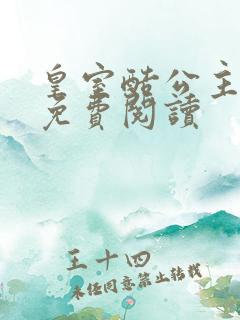 皇室酷公主
免費閱讀
王十四
未经同意禁止转载